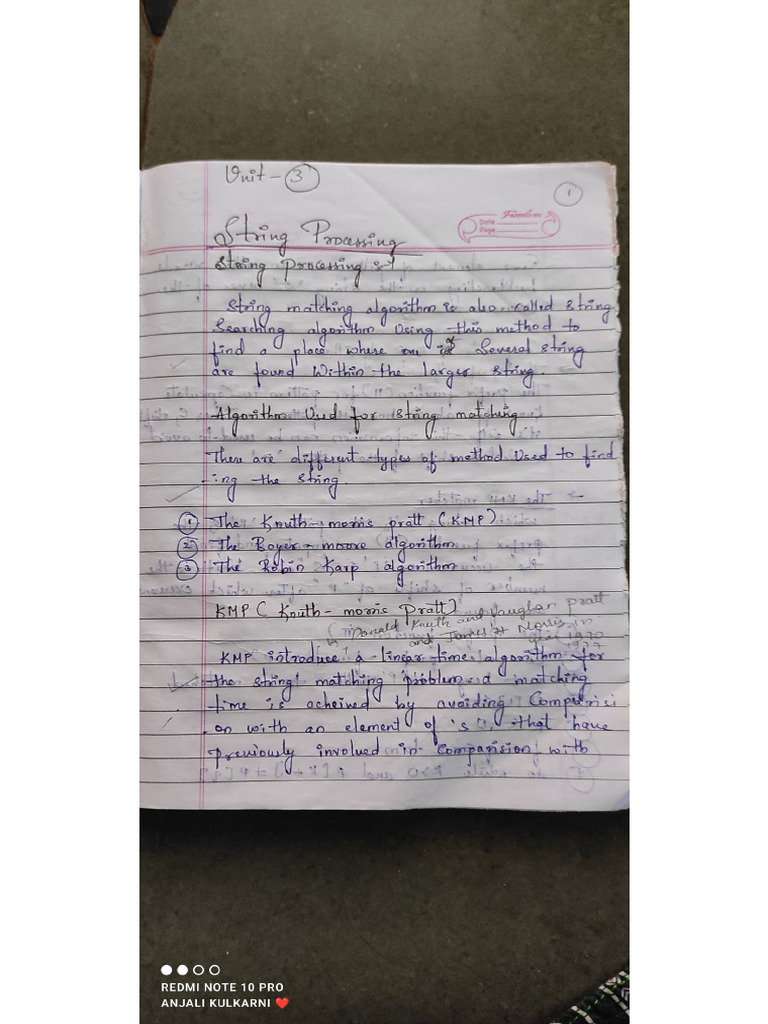 Unit - 3
1
Freedom
Date
Page
String Processing
String Processing :-
String matching algorithm is also called string
Searching algorithm Using this method to
find a place where one is Several string
are found Within the larger string.
Algorithm Used for string matching
There are different types of method Used to find
ing the string.
1 The Knuth - morris pratt (KMP)
2 The Boyer - moore algorithm
3 The Robin Karp algorithm
KMP ( Knuth - morris Pratt)
Donald Knuth and Vaughan pratt
and James H Morris in
1970
1977
KMP introduce a linear time algorithm for
the string matching problem. a matching
time is acheived by avoiding Comparisi
on with an element of 's', that have
previously involved in comparision with
REDMI NOTE 10 PRO
ANJALI KULKARNI ❤